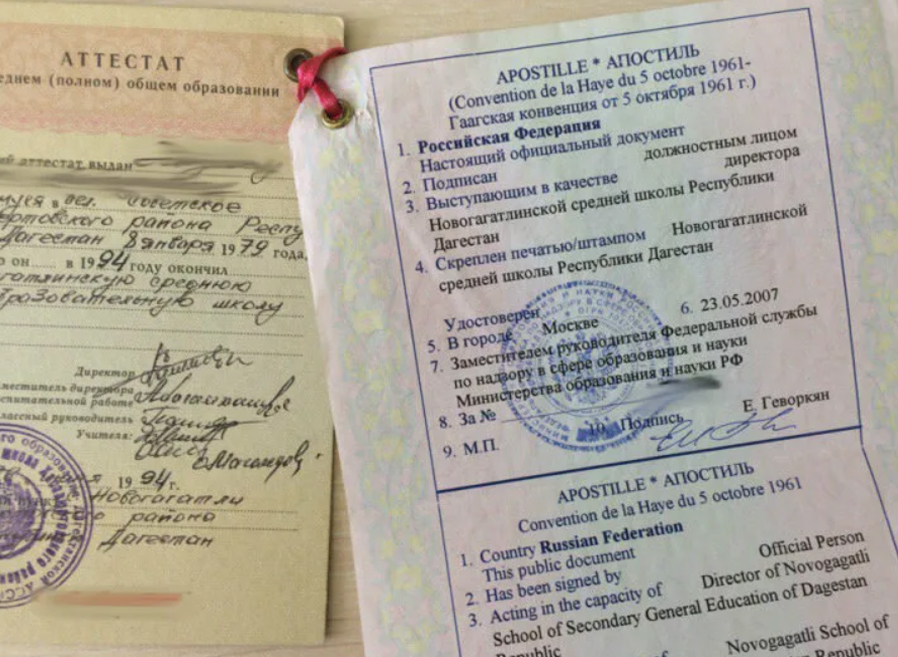 АТТЕСТАТ
еднем (полном) общем образовании
ий аттестат выдан
в сел. Советское
района Респу
Дагестан 8 января 1979 года,
о он в 1994 году окончил
среднюю
образовательную школу
Директор
меститель директора
спитательной работе
лассный руководитель
Учителя:
1994 г.
Новогагатли
района
Дагестан
APOSTILLE * АПОСТИЛЬ
(Convention de la Haye du 5 octobre 1961-
Гаагская конвенция от 5 октября 1961 г.)
1. Российская Федерация
Настоящий официальный документ
2. Подписан должностным лицом
3. Выступающим в качестве директора
Новогагатлинской средней школы Республики
Дагестан
4. Скреплен печатью/штампом Новогагатлинской
средней школы Республики Дагестан
Удостоверен
5. В городе Москве 6. 23.05.2007
7. Заместителем руководителя Федеральной службы
по надзору в сфере образования и науки
Министерства образования и науки РФ
8. За №
9. М.П. 10. Подпись Е. Геворкян
APOSTILLE * АПОСТИЛЬ
Convention de la Haye du 5 octobre 1961
1. Country Russian Federation
This public document
2. Has been signed by Official Person
3. Acting in the capacity of Director of Novogagatli
School of Secondary General Education of Dagestan
Republic
Novogagatli School of
Republic